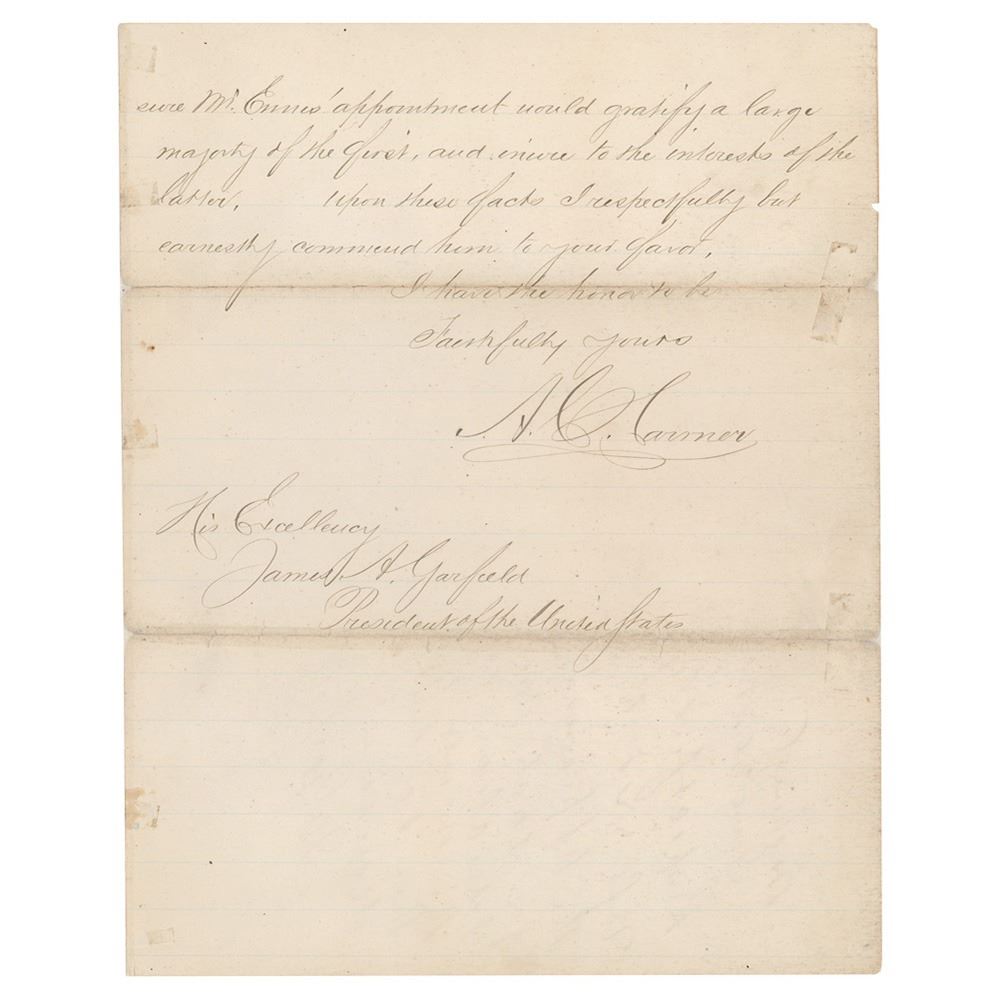 sure Mr. Ennis' appointment would gratify a large
majority of the first, and inure to the interests of the
latter. Upon these facts I respectfully but
earnestly commend him to your favor.
I have the honor to be
Faithfully yours
A. C. Harmer
His Excellency
James A. Garfield
President of the United States